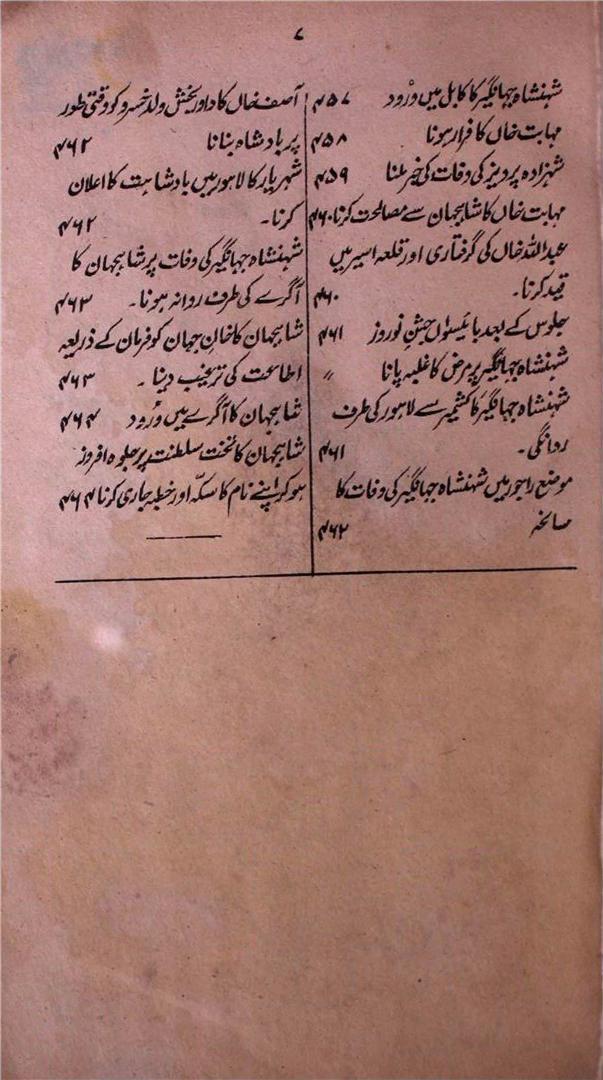 ۷
شہنشاہ جہانگیر کا کابل میں ورُود ۴۵۷
مہابت خاں کا فرار ہونا ۴۵۸
شہزادہ پرویز کی وفات کی خبر ملنا ۴۵۹
مہابت خاں کا شاہجہان سے مصالحت کرنا ۴۶۰
عبداللہ خاں کی گرفتاری اور قلعہ اسیر میں
قید کرنا۔ ۴۶۰
جلوس کے بعد بائیسواں جشنِ نوروز ۴۶۱
شہنشاہ جہانگیر پر مرض کا غلبہ پانا ″
شہنشاہ جہانگیر کا کشمیر سے لاہور کی طرف
روانگی۔ ۴۶۱
موضع راجور میں شہنشاہ جہانگیر کی وفات کا
سانحہ ۴۶۲
آصف خاں کا داور بخش ولد خسرو کو وقتی طور
پر بادشاہ بنانا ۴۶۲
شہریار کا لاہور میں بادشاہت کا اعلان
کرنا۔ ۴۶۲
شہنشاہ جہانگیر کی وفات پر شاہجہان کا
آگرے کی طرف روانہ ہونا۔ ۴۶۳
شاہجہان کا خانِ جہان کو فرمان کے ذریعہ
اطاعت کی ترغیب دینا۔ ۴۶۳
شاہجہان کا آگرے میں ورُود ۴۶۴
شاہجہان کا تخت سلطنت پر جلوہ افروز
ہو کر اپنے نام کا سکّہ اور خطبہ جاری کرنا ۴۶۴